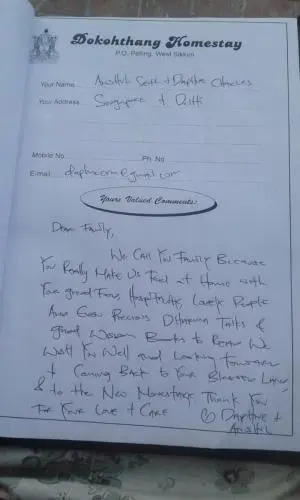 Dokohthang Homestay
P.O. Pelling, West Sikkim
Your Name Anshul Seth + Daphne
Your Address Singapore & Delhi
Mobile No. Ph. No.
E-mail @gmail.com
Yours Valued Comments:
Dear Family,
We Call You Family Because
You Really Make Us Feel at Home with
Your good Food, Hospitality, Lovely People
And Even Precious Dhamma Talks &
good Wisdom Books to Read. We
Wish You Well and Looking Forward
+ Coming Back to Your Blessed Land
& to the New Homestay. Thank You
For Your Love + Care Daphne +
Anshul